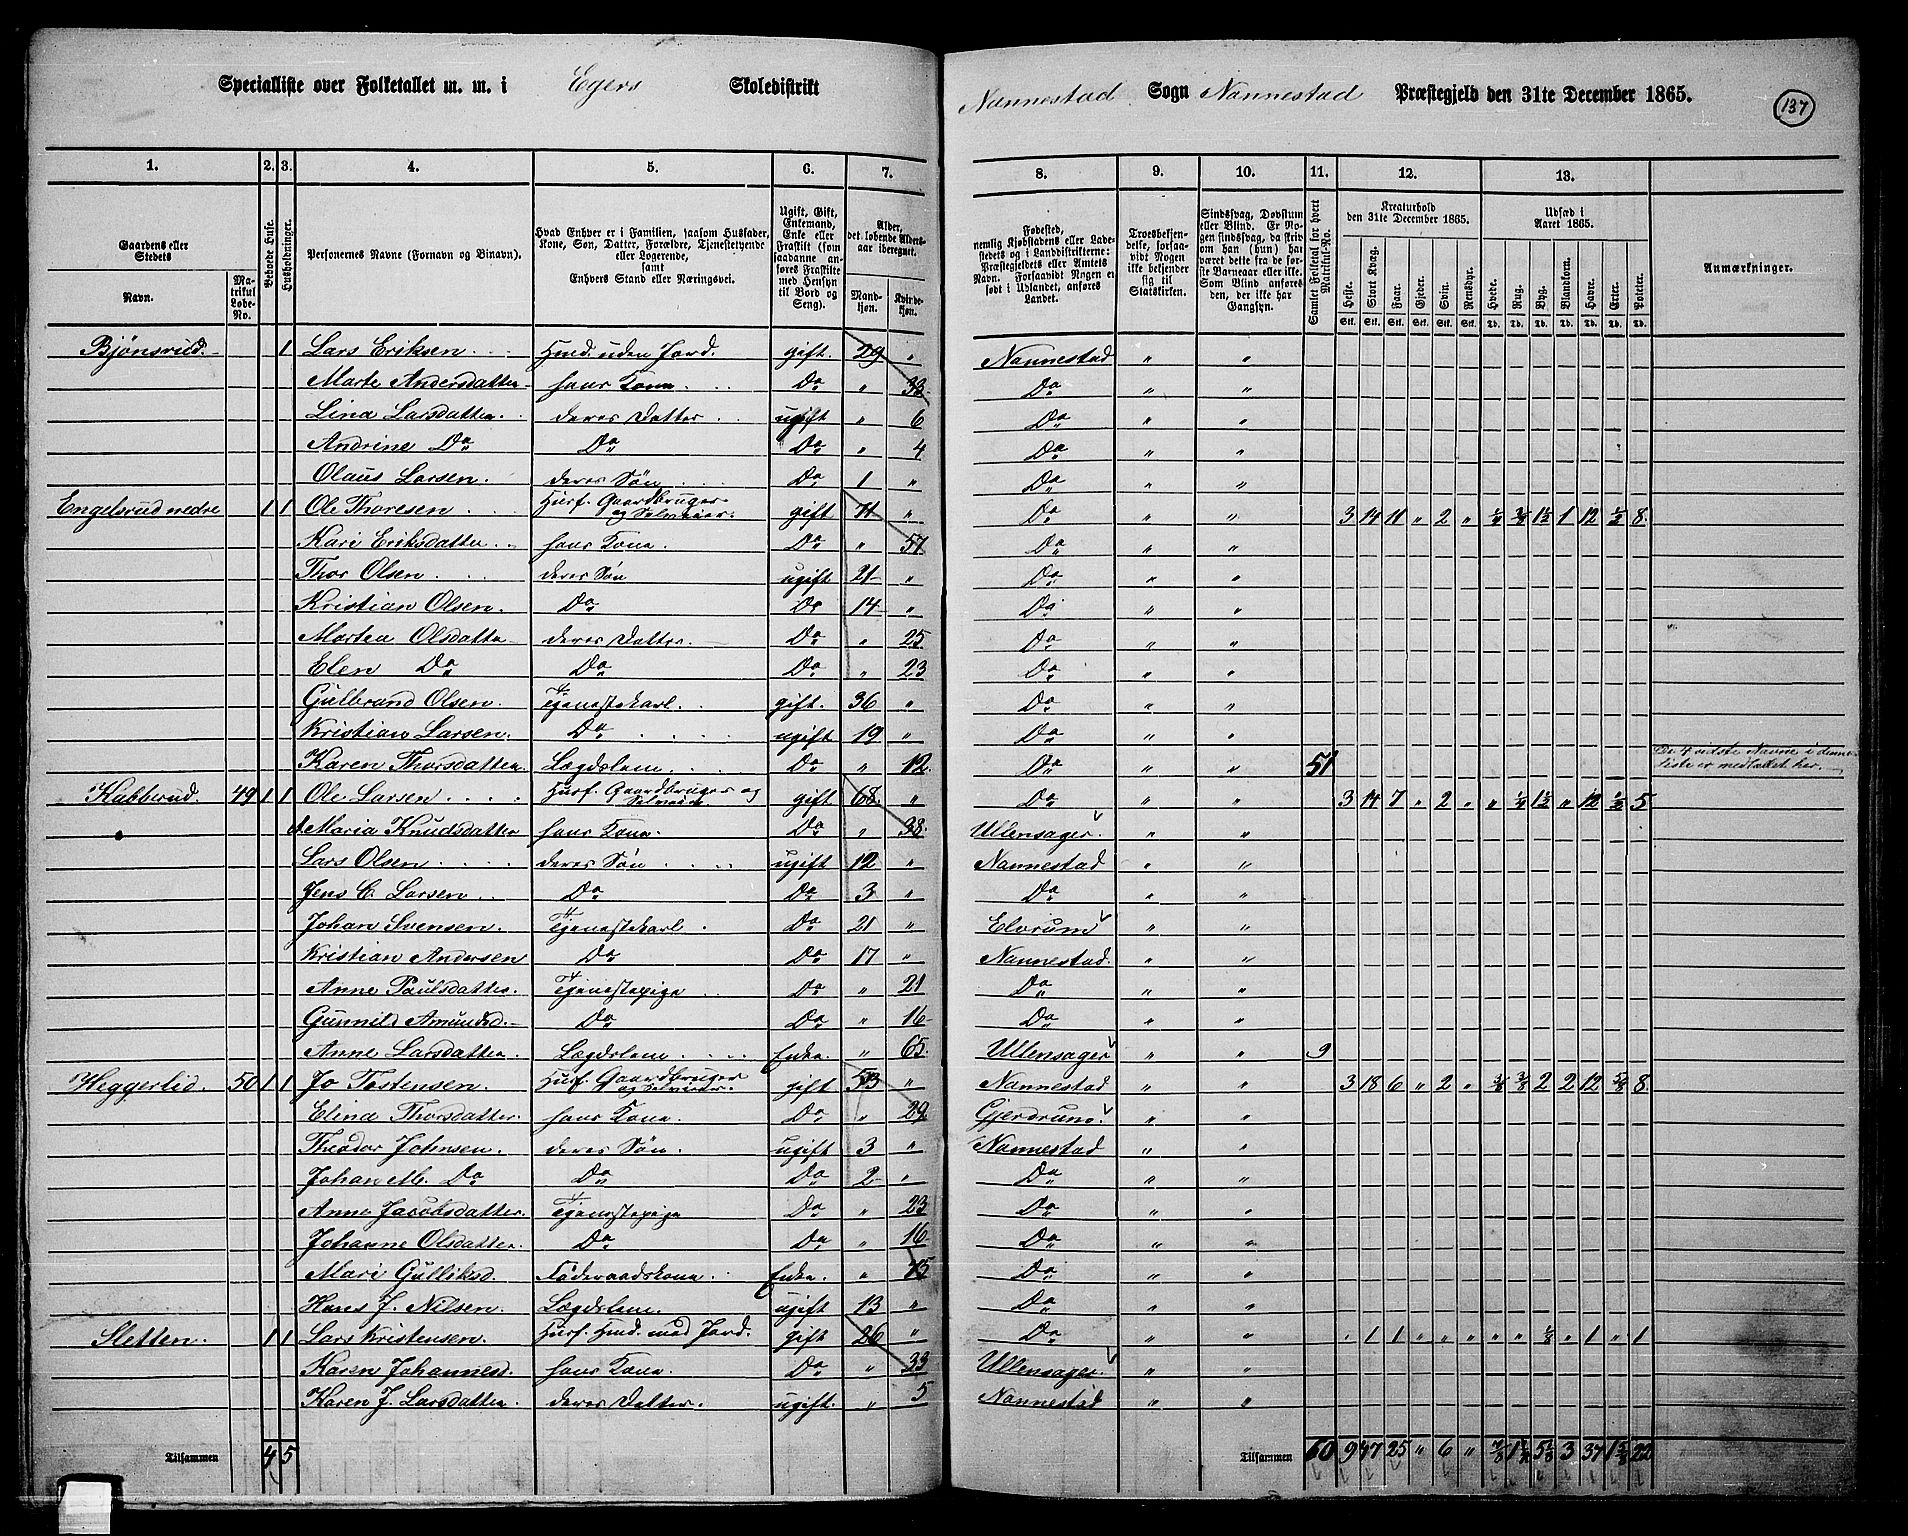 Specialliste over Folketallet m. m. i Egers Skoledistrikt Nannestad Sogn Nannestad Præstegjeld den 31te December 1865. 137
1. 2. 3. 4. 5. 6. 7. 8. 9. 10. 11. 12. 13.
Gaardens eller Stedets Navn. Matrikul Løbe-No. Beboede Huse. Husholdninger. Personernes Navne (Fornavn og Binavn). Hvad Enhver er i Familien, saasom Husfader, Kone, Søn, Datter, Forældre, Tjenestetyende eller Logerende, samt Enhvers Stand eller Næringsvei. Ugift, Gift, Enkemand, Enke eller Fraskilt (som saadanne anføres Fraskilte med Hensyn til Bord og Seng). Alder, det løbende Aldersaar iberegnet. Mandkjøn. Kvindekjøn.
Fødested, nemlig Kjøbstadens eller Ladestedets og i Landdistrikterne: Præstegjeldets eller Amtets Navn. Forsaavidt Nogen er født i Udlandet, anføres Landet. Troesbekjendelse, forsaavidt Nogen ikke bekjender sig til Statskirken. Sindssvag, Døvstum eller Blind. Er Nogen sindssvag, da skrives om han (hun) har været dette fra de første Barneaar eller ikke. Som Blind anføres den, der ikke har Gangsyn. Samlet Folketal for hvert Matrikul-No. Kreaturhold den 31te December 1865. Heste. Stort Kvæg. Faar. Gjeder. Svin. Rensdyr. Udsæd i Aaret 1865. Hvede. Rug. Byg. Blandkorn. Havre. Erter. Poteter. Anmærkninger.
Bjønsrud. 1 Lars Eriksen Hmd. uden Jord. gift. 29 " Nannestad " "
Marte Andersdatter hans Kone Do " 33 Do " "
Lina Larsdatter deres Datter ugift " 6 Do " "
Andrine Do Do Do " 4 Do " "
Olaus Larsen deres Søn Do 1 " Do " "
Engelsrud nedre 1 1 Ole Thoresen Husf. Gaardbruger og Selveier. gift 71 " Do " " 3 14 11 " 2 " 1/4 3/8 1½ 1 12 ½ 8
Kari Eriksdatter hans Kone Do " 57 Do " "
Thor Olsen deres Søn ugift 21 " Do " "
Kristian Olsen Do Do 14 " Do " "
Martea Olsdatter deres Datter Do " 25 Do " "
Elen Do Do Do " 23 Do " "
Gulbrand Olsen Tjenestekarl gift. 36 " Do " "
Kristian Larsen Do ugift 19 " Do " "
Karen Thorsdatter Lægdslem Do " 12 Do " " 51 De 4 sidste Navne i denne Liste er medtallet her.
Kabberud 49 1 1 Ole Larsen Husf. Gaardbruger og Selveier gift 68 " Do " " 3 14 7 " 2 " " 1/4 1½ " 12 ½ 5
Maria Knudsdatter hans Kone Do " 38 Ullensager " "
Lars Olsen deres Søn ugift 12 " Nannestad " "
Jens C. Larsen Do Do 3 " Do " "
Johan Svensen Tjenestekarl Do 21 " Elvrum " "
Kristian Andersen Do Do 17 " Nannestad " "
Anne Paulsdatter Tjenestepige Do " 21 Do " "
Gunnild Amundsd. Do Do " 16 Do " "
Anne Larsdatter Lægdslem Enke " 65 Ullensager " " 9
Heggerlid. 50 1 1 Jo Tostensen Husf. Gaardbruger og Selveier gift 53 " Nannestad " " 3 18 6 " 2 " 3/8 3/8 2 2 12 5/8 8
Elina Thorsdatter hans Kone Do " 29 Gjerdrum " "
Theodor Johnsen deres Søn ugift 3 " Nannestad " "
Johan M. Do Do Do 2 " Do " "
Anne Jacobsdatter Tjenestepige Do " 23 Do " "
Johanne Olsdatter Do Do " 16 Do " "
Mari Gulliksd. Føderaadskone Enke. " 75 Do " "
Hans J. Nilsen Lægdslem ugift 13 " Do " "
Sletten 1 1 Lars Kristensen Husf. Hmd. med Jord. gift 26 " Do " " " 1 1 " " " " " 1/8 " 1 " 1
Karen Johannesd. hans Kone Do " 33 Ullensager " "
Karen J. Larsdatter deres Datter ugift. " 5 Nannestad " "
Tilsammen 4 5 Tilsammen 60 9 47 25 " 6 " 3 37 1 5/8 22